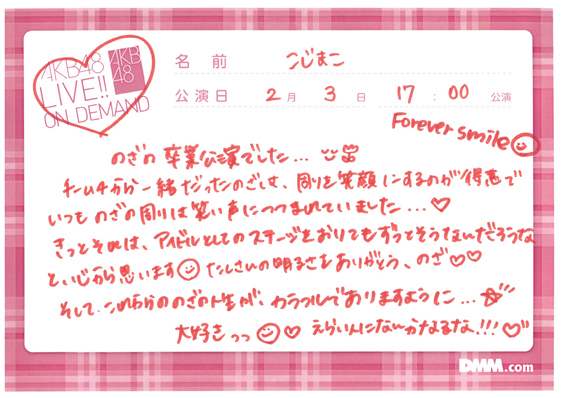 AKB48
LIVE!!
ON DEMAND
AKB
48
名前 こじまこ
公演日 2月 3日 17:00 公演
Forever smile
のざわ卒業公演でした...
チーム4から一緒だったのざわは、周りを笑顔にするのが得意で
いつものざわの周りは笑い声につつまれていました...♡
きっとそれは、アイドルとしてのステージをおりてもずっとそうなんだろうな
と心から思います たくさんの明るさをありがとう、のざわ♡♡
そして、これからののざわの人生が、カラフルでありますように...☆
大好きっっ ♡ えらい人になってもなるな!!!♡
DMM.com